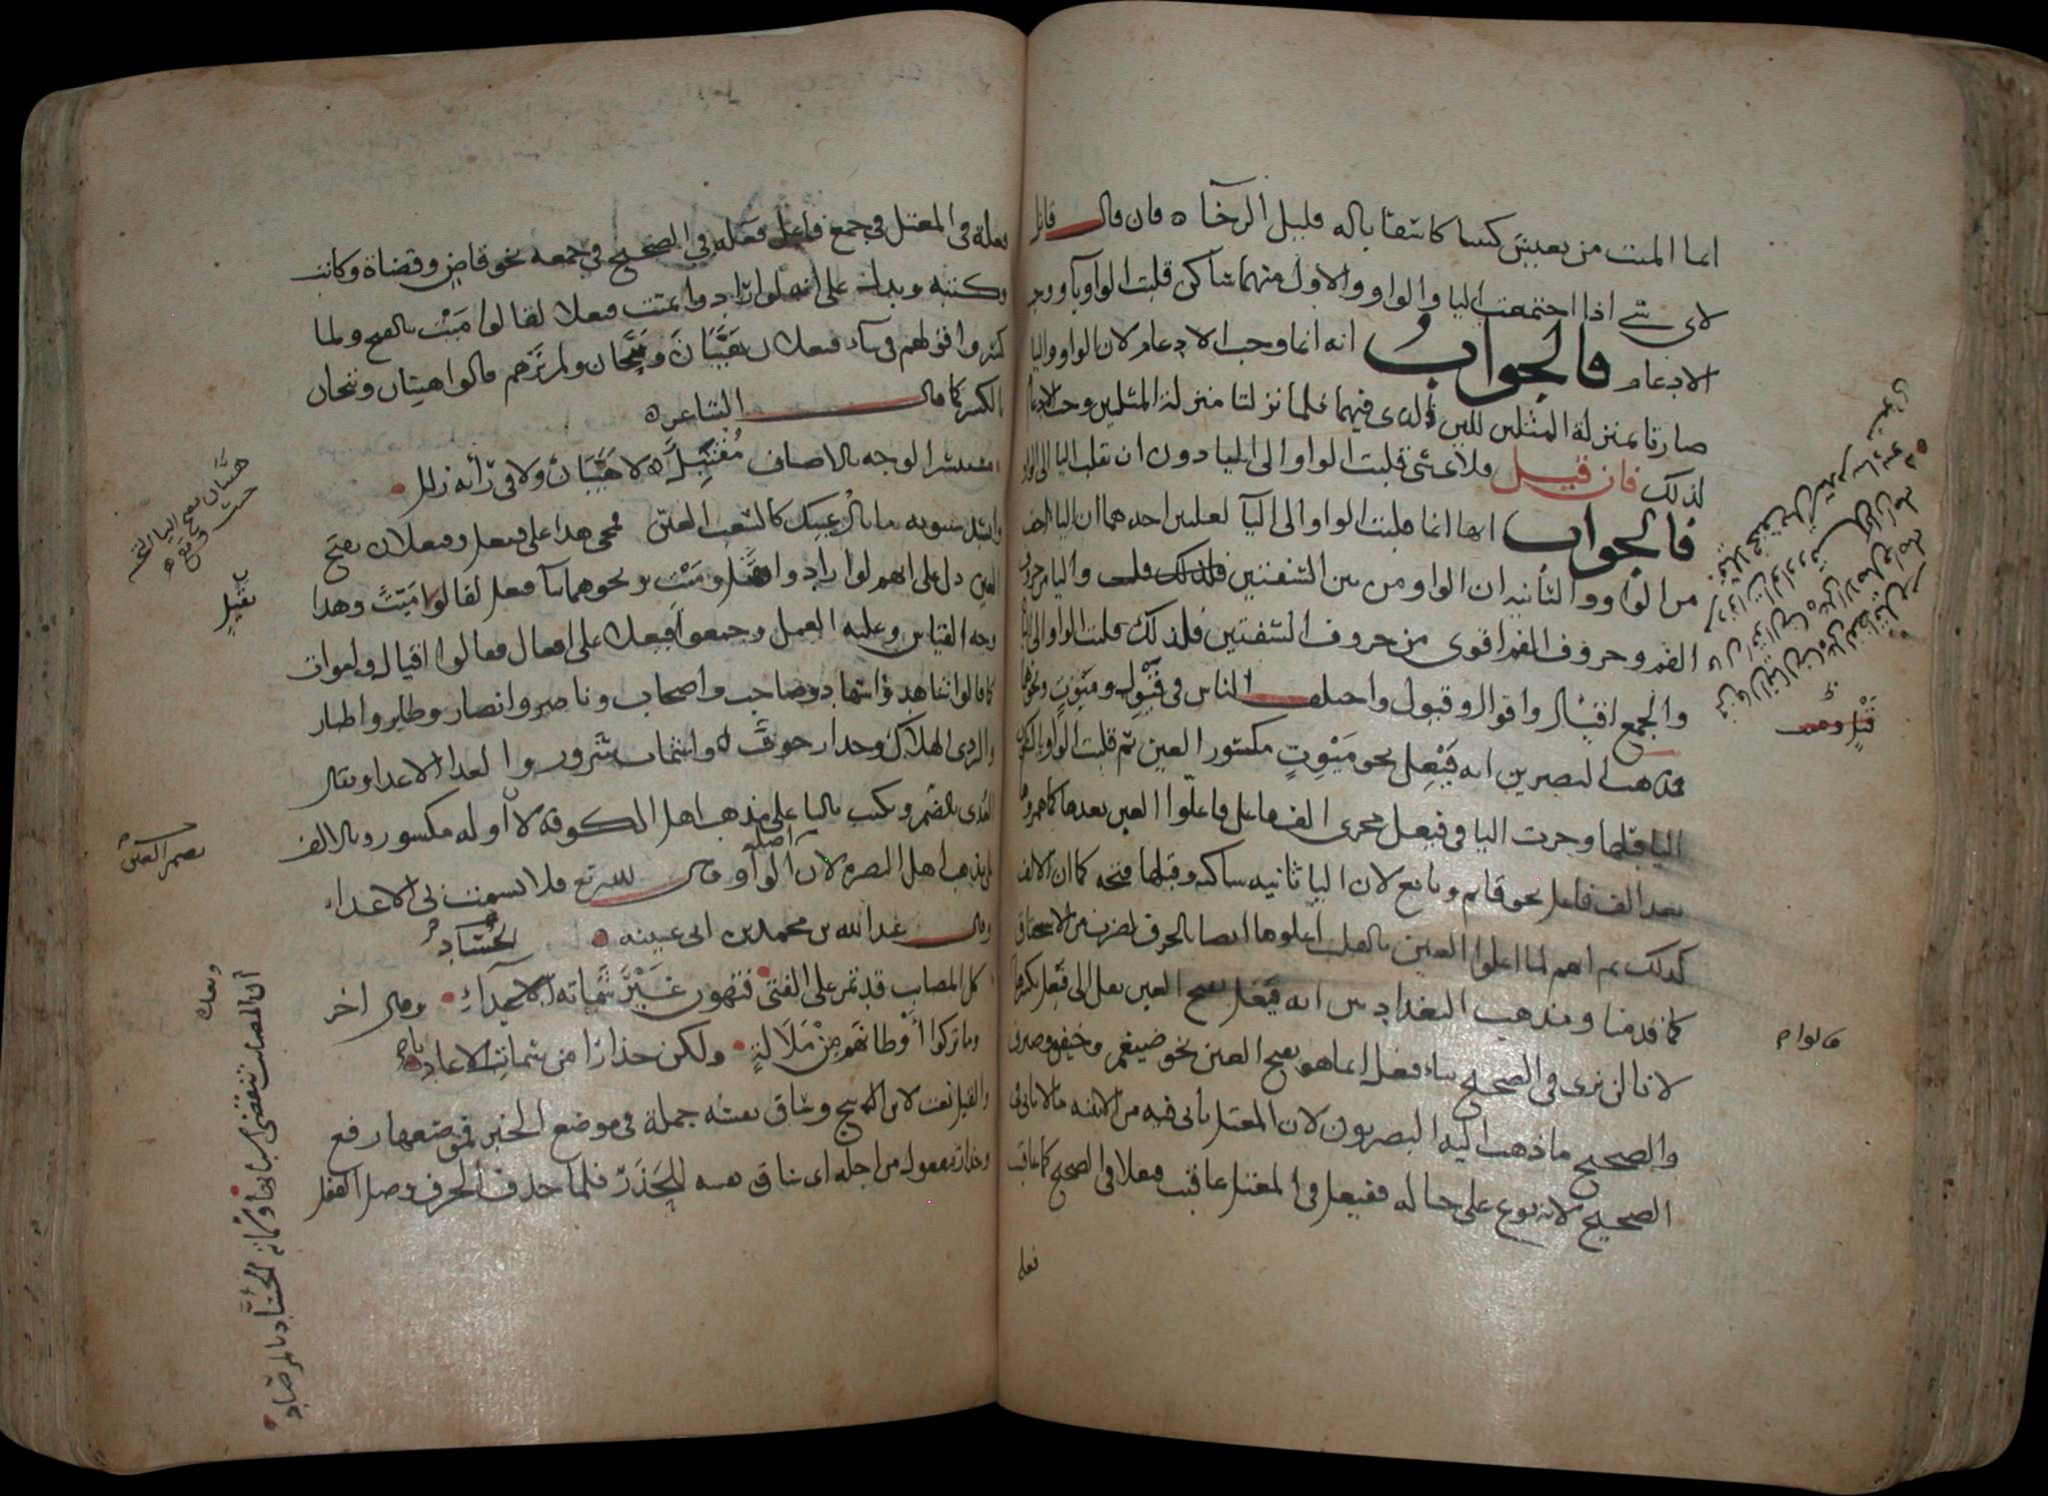 انما الميت من يعيش كئيبا كاسفا باله قليل الرخاء فان قال قائل
لاى شى اذا اجتمعت اليا والواو والاول منهما ساكن قلبت الواو يآ ووجب
الادغام فالجواب انه انما وجب الادغام لان الواو واليا
صارتا بمنزلة المثلين للين الذى فيهما فلما نزلتا منزلة المثلين وجب الادغام
لذلك فان قيل فلاى شى قلبت الواو الى اليا دون ان تقلب اليا الى الواو
فالجواب انها انما قلبت الواو الى اليآ لعلتين احدهما ان اليا اخف
من الواو والثانيه ان الواو من بين الشفتين واليا من حروف
الفم وحروف الفم اقوى من حروف الشفتين فلذلك قلبت الواو الى اليا
والجمع اقيال واقوال وقيول واختلف الناس فى قَيْوِل ومَيْوِت ونحوهما
فذهب البصريين انه فَيْعِل نحو مَيْوِتٍ مكسور العين ثم قلبت الواو يا لسكون
اليا قبلها وجرت اليا فى فيعل مجرى الف فاعل فاعلّوا العين بعدها كما همزوها
بعد الف فاعل نحو قايم وبايع لان اليا ثانيه ساكنه وقبلها فتحه كما ان الالف
كذلك ثم انهم لما اعلوا العين بالقلب اعلوها ايضا بالحذف لضرب من الاستخفاف
كما قدمنا ومذهب البغداديين انه فَيْعَل بفتح العين نقل الى فيعِل بكسرها
لانا لن نرى فى الصحيح بناء فيعِل انما هو بفتح العين نحو ضيغم وخيفق وصيرف
والصحيح ما ذهب اليه البصريون لان المعتل ياتى فيه من الابنيه ما لا ياتى فى
الصحيح لانه نوع على حياله ففيعِل فى المعتل عاقبت فيعَلا فى الصحيح كما عاقبت
فعله
قالوا
فُعلة فى المعتل فى جمع فاعل فَعَله فى الصحيح فى جمعه نحو قاض وقضاة وكاتب
وكتبه ويدلك على انه لو ارادوا بميت فيعلا لقالوا مَيَّت بالفتح ولما
كسروا قولهم فى بناء فيعلان هَيَّبان وتَيَّحان ولم نرهم قالوا هيبان وتيحان
بالكسر كما قال الشاعر
لا هَيَّبان ولا فى رأيه زلل
وانشد سيبويه ما بال عينك كالشعيب العيّن فمجى هذا على فيعل وفيعلان بفتح
العين دل على انهم لو ارادوا بهيّن وميّت ونحوهما بنآ فيعل لقالوا ميَّت وهذا
وجه القياس وعليه العمل وجمعوا فيعلا على افعال فقالوا اقيال واموات
كما قالوا شاهد واشهاد وصاحب واصحاب وناصر وانصار وطاير واطيار
والردى الهلاك وحذار خوف واشمات سرور والعدا الاعدا ويقال
العُدى بالضم ويكتب باليا على مذهب اهل الكوفه لان اوله مكسور وبالالف
على مذهب اهل البصره لان اصله الواو وقال الله تع فلا تشمت بى الاعداء
وقال عبد الله بن محمد بن ابى عيينه
كل المصايب قد تمر على الفتى فتهون غَيْرَ شماته الاعداءِ وقال اخر
الحُسّاد
وما تركوا أوطانهم مِنْ مَلالةٍ ولكن حذارًا من شمات الاعاديا
والقيل نعت لابن الاشج وساق نفسه جملة فى موضع الخبر فموضعها رفع
وحذار مفعول من اجله اى ساق نفسه للحَذَر فلما حذف الحرف وصل الفعل
هيَّبان بفتح اليا
ثقيل
بضم العين
وبعده
ان المصايب تنقضى اسبابها وشماتة الحساد بالمرصاد